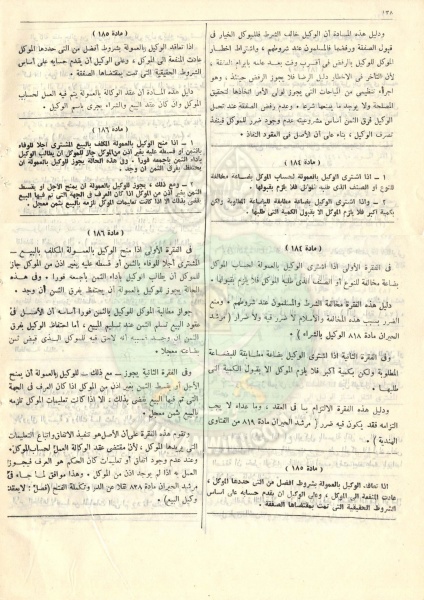 ١٣٨
ودليل هذه المادة أن الوكيل خالف الشرط فللموكل الخيار فى
قبول الصفقة ورفضها فالمسلمون عند شروطهم ، واشتراط اخطار
الموكل للوكيل بالرفض فى أقرب وقت بعد علمه بابرام الصفقة ،
لأن التأخر فى الاخطار دليل الرضا فلا يجوز الرفض حينئذ ، وهو
اجراء تنظيمى من المباحات التى يجوز لولى الأمر اتخاذها لتحقيق
المصلحة ولا يوجد ما يمنعها شرعا ، وعدم رفض الصفقة عند تحمل
الوكيل فرق الثمن أساس مشروعيته عدم وجود ضرر للموكل فينفذ
تصرف الوكيل ، بناء على أن الأصل فى العقود النفاذ .
( مادة ١٨٤ )
١ – اذا اشترى الوكيل بالعمولة لحساب الموكل بضاعة مخالفة
للنوع أو الصنف الذى طلبه الموكل فلا يلزم بقبولها .
٢ – واذا اشترى الوكيل بضاعة مطابقة للبضاعة المطلوبة ولكن
بكمية أكبر فلا يلزم الموكل الا بقبول الكمية التى طلبها .
( مادة ١٨٤ )
فى الفقرة الأولى اذا اشترى الوكيل بالعمولة لحساب الموكل
بضاعة مخالفة للنوع أو الصنف الذى طلبه الموكل فلا يلزم بقبولها .
ودليل هذه الفقرة مخالفة الشرط والمسلمون عند شروطهم ، ومنع
الضرر بسبب هذه المخالفة والاسلام لا ضرر فيه ولا ضرار ( مرشد
الحيران مادة ٨١٨ الوكيل بالشراء ) .
وفى الفقرة الثانية اذا اشترى الوكيل بضاعة مطابقة للبضاعة
المطلوبة ولكن بكمية أكبر فلا يلزم الموكل الا بقبول الكمية التى
طلبها .
ودليل هذه الفقرة الالتزام بما فى العقد ، وما عداه لا يجب
التزامه فقد يكون فيه ضرر ( مرشد الحيران مادة ٨١٩ من الفتاوى
الهندية ) .
( مادة ١٨٥ )
اذا تعاقد الوكيل بالعمولة بشروط أفضل من التى حددها الموكل ،
عادت المنفعة الى الموكل ، وعلى الوكيل أن يقدم حسابه على أساس
الشروط الحقيقية التى تمت بمقتضاها الصفقة .
( مادة ١٨٥ )
اذا تعاقد الوكيل بالعمولة بشروط أفضل من التى حددها الموكل
عادت المنفعة الى الموكل ، وعلى الوكيل أن يقدم حسابه على أساس
الشروط الحقيقية التى تمت بمقتضاها الصفقة .
دليل هذه المادة أن عقد الوكالة بالعمولة يتم فيه العمل لحساب
الموكل وان كان عقد البيع والشراء يجرى باسم الوكيل .
( مادة ١٨٦ )
١ – اذا منح الوكيل بالعمولة المكلف بالبيع المشترى أجلا للوفاء
بالثمن أو قسطه عليه بغير اذن من الموكل جاز للموكل أن يطالب الوكيل
بأداء الثمن بأجمعه فورا . وفى هذه الحالة يجوز للوكيل بالعمولة أن
يحتفظ بفرق الثمن ان وجد .
٢ – ومع ذلك ، يجوز للوكيل بالعمولة أن يمنح الأجل أو يقسط
الثمن بغير اذن من الموكل اذا كان العرف فى الجهة التى تم فيها البيع
يقضى بذلك الا اذا كانت تعليمات الموكل تلزمه بالبيع بثمن معجل .
( مادة ١٨٦ )
فى الفقرة الأولى اذا منح الوكيل بالعمولة المكلف بالبيع –
المشترى أجلا للوفاء بالثمن أو قسطه عليه بغير اذن من الموكل جاز
للموكل أن يطالب الوكيل بأداء الثمن بأجمعه فورا ، وفى هذه
الحالة يجوز للوكيل بالعمولة أن يحتفظ بفرق الثمن ان وجد .
جواز مطالبة الموكل للوكيل بالثمن فورا أساسه أن الأصل فى
عقود البيع تسلم الثمن عند تسليم المبيع ، أما احتفاظ الوكيل بفرق
الثمن ان وجد أنه لاحق فيه للموكل الذى قبض ثمن
بضاعته معجلا .
وفى الفقرة الثانية يجوز – مع ذلك – للوكيل بالعمولة أن يمنح
الأجل أو تقسيط الثمن بغير اذن من الموكل اذا كان العرف فى الجهة
التى تم فيها البيع يقضى بذلك ، الا اذا كانت تعليمات الموكل تلزمه
بالبيع بثمن معجل .
وتقوم هذه الفقرة على أن الأصل هو تنفيذ الاتفاق واتباع التعليمات
التى يريدها الموكل ، لأن مقتضى عقد الوكالة العمل لحساب الموكل ،
وعند عدم وجود اتفاق أو تعليمات كان الحكم هو العرف فيجوز
العمل به اذا لم يوجد اذن من الموكل . وهذا موافق لما جاء فى
مرشد الحيران مادة ٨٣٨ نقلا عن الدر وتكملة الفتح ( فصل : لا يعقد
وكيل البيع ) .